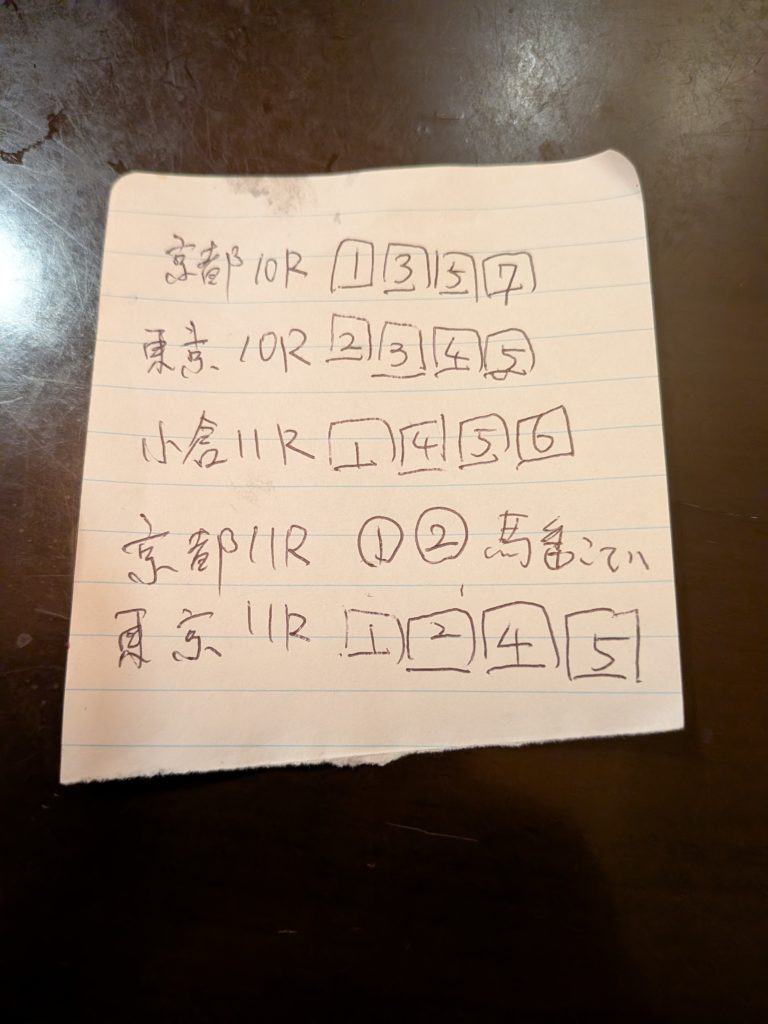 京都10R 1 3 5 7
東京 10R 2 3 4 5
小倉11R 1 4 5 6
京都11R ① ② 馬番
東京11R 1 2 4 5